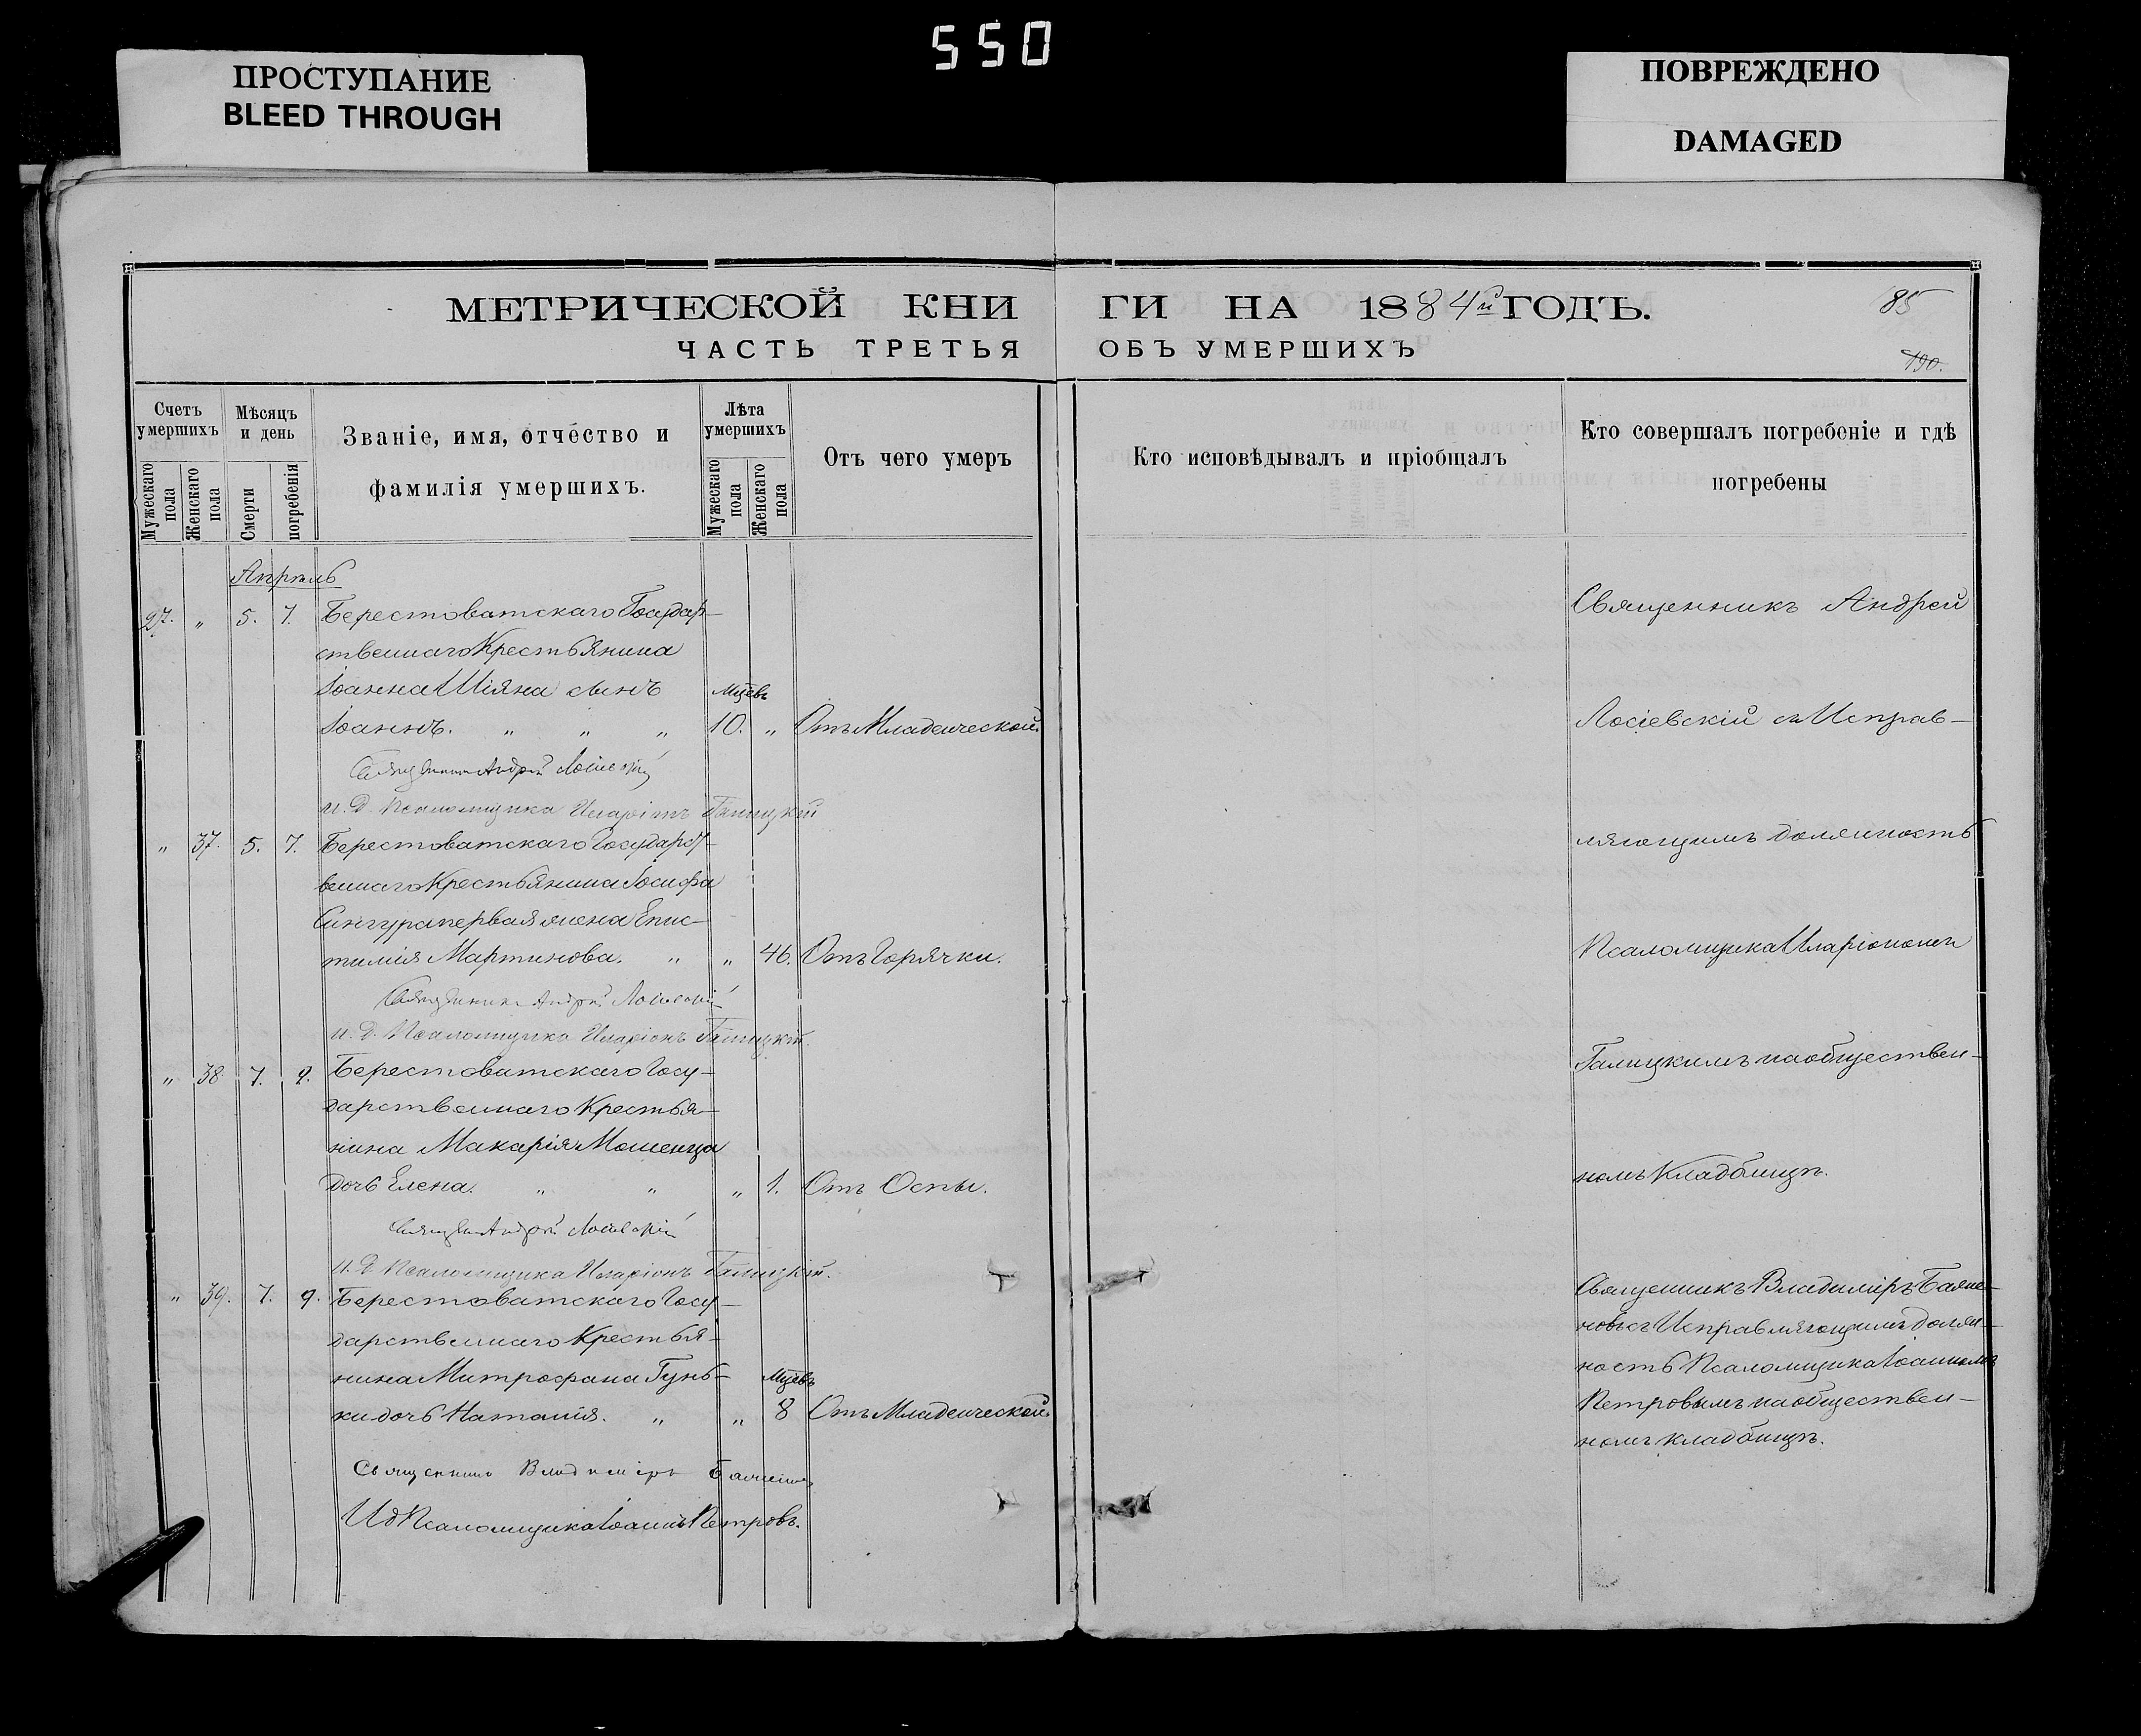 550
ПРОСТУПАНИЕ
BLEED THROUGH
ПОВРЕЖДЕНО
DAMAGED
МЕТРИЧЕСКОЙ КНИ
ГИ НА 1884й ГОДЪ.
85
190.
ЧАСТЬ ТРЕТЬЯ
ОБЪ УМЕРШИХЪ
Счетъ умершихъ
Мужескаго пола
Женскаго пола
Мѣсяцъ и день
Смерти
погребенія
Званіе, имя, отчество и
фамилія умершихъ.
Лѣта умершихъ
Мужескаго пола
Женскаго пола
Отъ чего умеръ
Кто исповѣдывалъ и пріобщалъ
Кто совершалъ погребеніе и гдѣ
погребены
Апрѣль
27. " 5. 7. Берестоватскаго Государ-
ственнаго Крестьянина
Іоанна Шіяна сынъ Мцевъ
Іоаннъ. " " " 10. " Отъ Младенческой.
Священникъ Андрей Лосіевскій
И. Д. Псаломщика Иларіонъ Галицкій
" 37. 5. 7. Берестоватскаго Государст-
веннаго Крестьянина Іосифа
Сингура первая жена Епис-
тимія Мартинова. " " 46. Отъ Горячки.
Священникъ Андрей Лосіевскій
И. Д. Псаломщика Иларіонъ Галицкій.
" 38 7. 9. Берестоватскаго Госу-
дарственнаго Крестья-
нина Макарія Мошенца
дочь Елена. " " " 1. Отъ Оспы.
Андрей Лосіевскій
И. Д. Псаломщика Иларіонъ Галицкій.
" 39. 7. 9. Берестоватскаго Госу-
дарственнаго Крестья-
нина Митрофана Гунь- Мцевъ
ки дочь Наталія. " " 8 Отъ Младенческой.
Священникъ Владиміръ Баженовъ
Ид Псаломщика Іоаннъ Петровъ.
Священникъ Андрей
Лосіевскій съ Исправ-
ляющимъ должность
Псаломщика Иларіономъ
Галицкимъ на обществен-
номъ Кладбищѣ.
Священникъ Владиміръ Баже-
новъ съ Исправляющимъ долж-
ность Псаломщика Іоанномъ
Петровымъ на обществен-
номъ кладбищѣ.